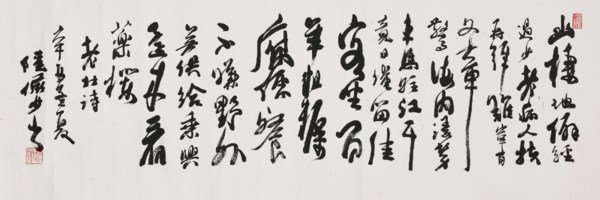 幽棲地僻經
過少老病人扶
再拜難豈有
文章
驚海內漫勞
車馬駐江干
竟日淹留佳
客坐百
年粗糲
腐儒餐
不嫌野外
無供給乘興
還來看
藥欄
老杜詩
夏
陸儼少書